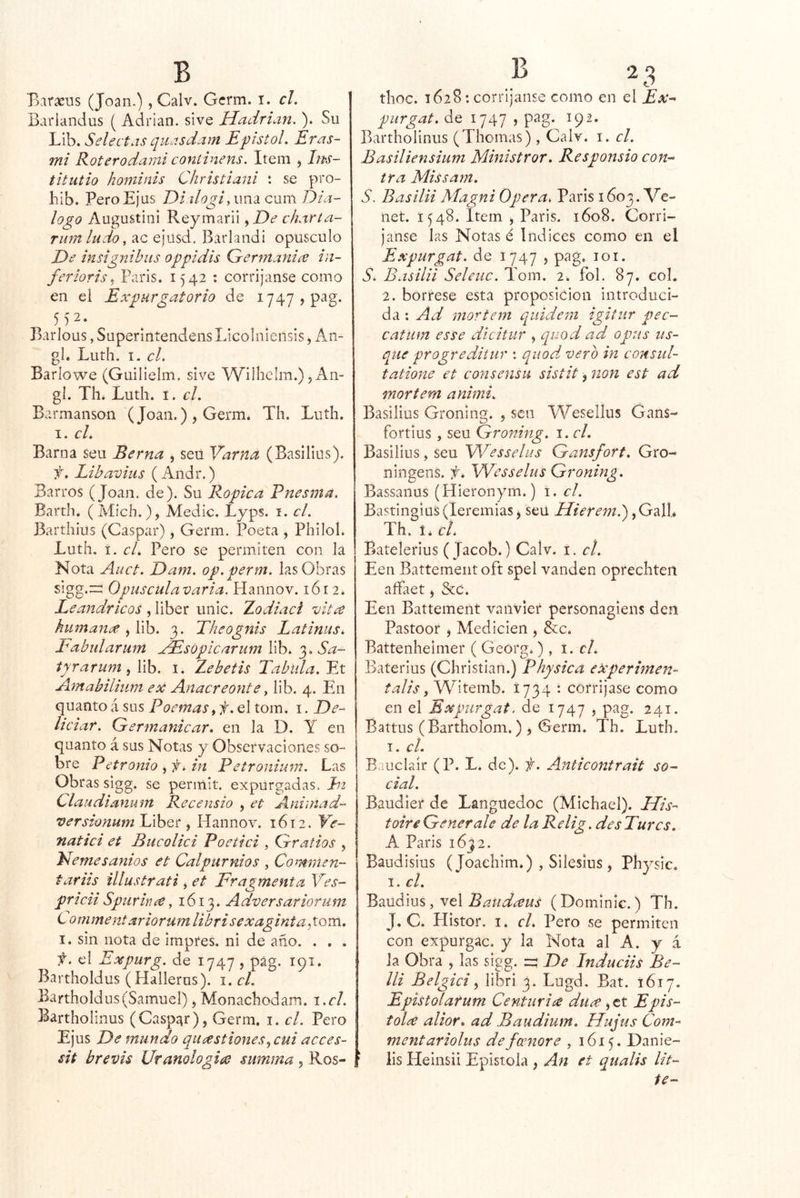 B
Baræus (Joan.) , Calv. Germ. 1. cl.
Barlandus ( Adrian. sive Hadrian. ). Su
Lib. Selectas quasdam Epistol. Eras-
mi Roterodami continens. Item , Ins-
titutio hominis Christiani : se pro-
hib. Pero Ejus Dialogi, una cum Dia-
logo Augustini Reymarii , De charta-
rum ludo, ac ejusd. Barlandi opusculo
De insignibus oppidis Germaniæ in-
ferioris, Paris. 1542 : corrijanse como
en el Expurgatorio de 1747 , pag.
552.
Barlous, Superintendens Licolniensis, An-
gl. Luth. 1. cl.
Barlowe (Guilielm. sive Wilhelm.) , An-
gl. Th. Luth. 1. cl.
Barmanson (Joan.) , Germ. Th. Luth.
1. cl.
Barna seu Berna , seu Varna (Basilius).
℣. Libavius ( Andr.)
Barros (Joan. de). Su Ropica Pnesma.
Barth. ( Mich.), Medic. Lyps. 1. cl.
Barthius (Caspar) , Germ. Poeta , Philol.
Luth. 1. cl. Pero se permiten con la
Nota Auct. Dam. op. perm. las Obras
sigg.= Opuscula varia. Hannov. 1612.
Leandricos , liber unic. Zodiaci vitæ
humanæ , lib. 3. Theognis Latinus.
Fabularum Æsopicarum lib. 3. Sa-
tyrarum , lib. 1. Zebetis Tabula. Et
Amabilium ex Anacreonte, lib. 4. En
quanto á sus Poemas, ℣. el tom. 1. De-
liciar. Germanicar. en la D. Y en
quanto á sus Notas y Observaciones so-
bre Petronio , ℣. in Petronium. Las
Obras sigg. se permit. expurgadas. In
Claudianum Recensio , et Animad-
versionum Liber , Hannov. 1612. Ve-
natici et Bucolici Poetici , Gratios ,
Nemesanios et Calpurnios , Commen-
tariis illustrati , et Fragmenta Ves-
pricii Spurinæ, 1613. Adversariorum
Commentariorum libri sexaginta, tom.
1. sin nota de impres. ni de año. . . .
℣. el Expurg. de 1747 , pag. 191.
Bartholdus ( Hallerus). 1. cl.
Bartholdus (Samuel) , Monachodam. 1. cl.
Bartholinus (Caspar), Germ. 1. cl. Pero
Ejus De mundo quæstiones, cui acces-
sit brevis Uranologiæ summa , Ros-
B 23
thoc. 1628: corrijanse como en el Ex-
purgat. de 1747 , pag. 192.
Bartholinus (Thomas) , Calv. 1. cl.
Basiliensium Ministror. Responsio con-
tra Missam.
S. Basilii Magni Opera. Paris 1603. Ve-
net. 1548. Item , Paris. 1608. Corri-
janse las Notas é Indices como en el
Expurgat. de 1747 , pag. 101.
S. Basilii Seleuc. Tom. 2. fol. 87. col.
2. borrese esta proposicion introduci-
da : Ad mortem quidem igitur pec-
catum esse dicitur , quod ad opus us-
que progreditur : quod vero in consul-
tatione et consensu sistit , non est ad
mortem animi.
Basilius Groning. , seu Wesellus Gans-
fortius , seu Groning. 1. cl.
Basilius , seu Wesselus Gansfort. Gro-
ningens. ℣. Wesselus Groning.
Bassanus (Hieronym.) 1. cl.
Bastingius (Ieremias, seu Hierem.) , Gall.
Th. 1. cl.
Batelerius (Jacob.) Calv. 1. cl.
Een Battement oft spel vanden oprechten
affaet , &c.
Een Battement vanvier personagiens den
Pastoor , Medicien , &c.
Battenheimer ( Georg. ) , 1. cl.
Baterius (Christian.) Physica experimen-
talis , Witemb. 1734 : corrijase como
en el Expurgat. de 1747 , pag. 241.
Battus (Bartholom.) , Germ. Th. Luth.
1. cl.
Bauclair (P. L. de). ℣. Anticontrait so-
cial.
Baudier de Languedoc (Michael). His-
toire Generale de la Relig. des Turcs.
A Paris 1632.
Baudisius (Joachim.) , Silesius , Physic.
1. cl.
Baudius , vel Baudæus (Dominic.) Th.
J. C. Histor. 1. cl. Pero se permiten
con expurgac. y la Nota al A. y á
la Obra , las sigg. = De Induciis Be-
lli Belgici , libri 3. Lugd. Bat. 1617.
Epistolarum Centuriæ duæ , et Epis-
tolæ alior. ad Baudium. Hujus Com-
mentariolus de fœnore , 1615. Danie-
lis Heinsii Epistola , An et qualis lit-
te-